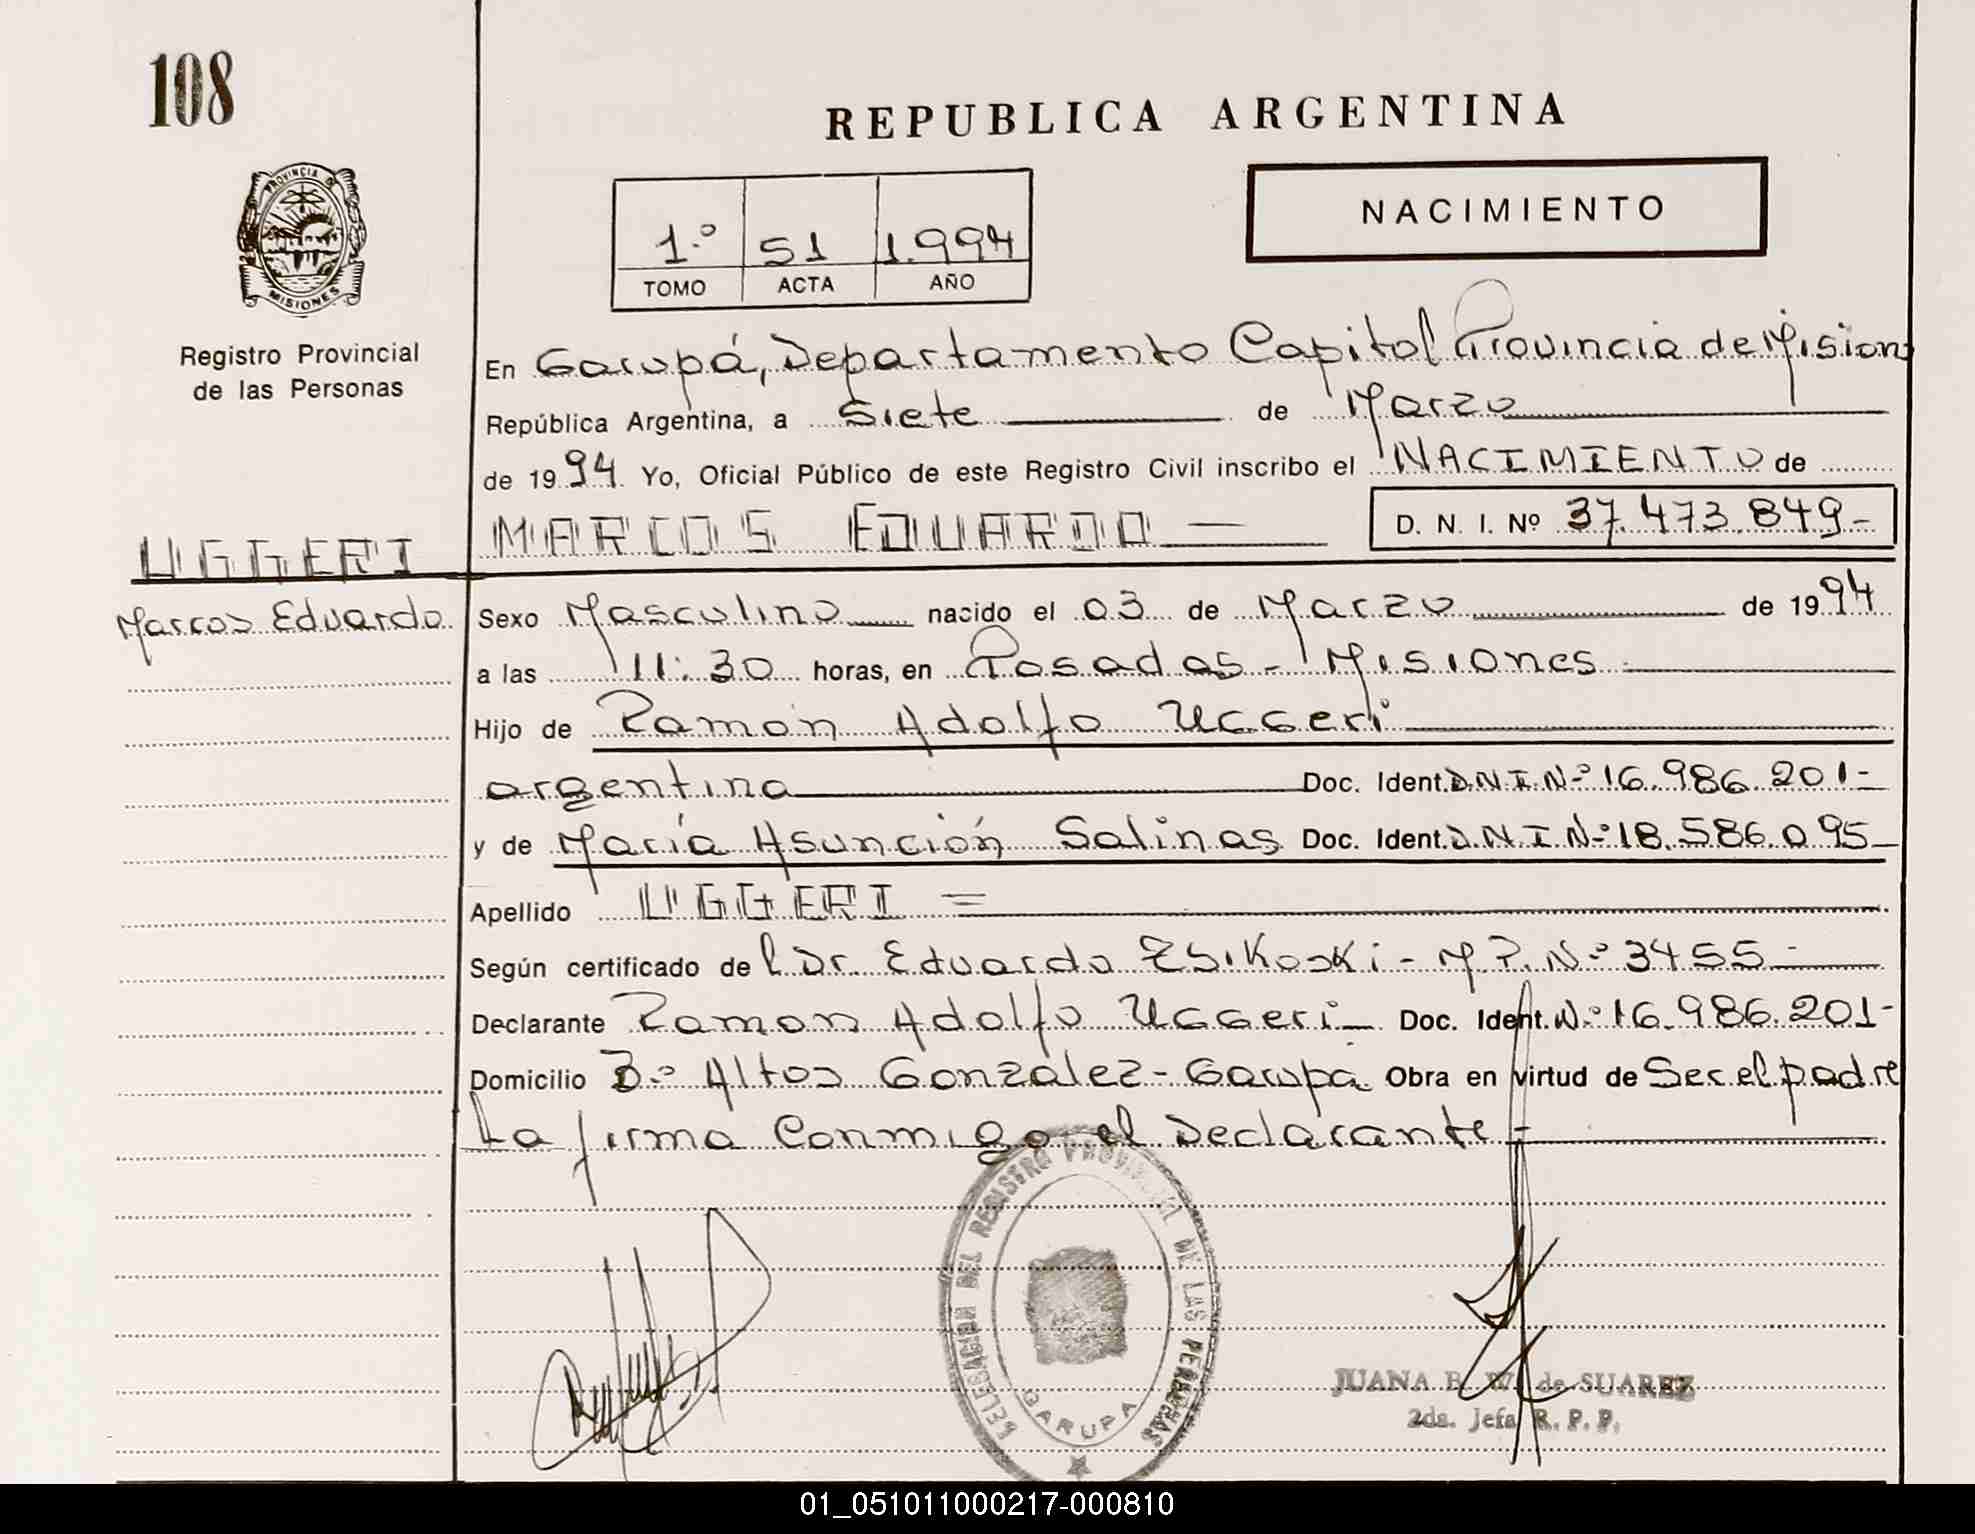 108
REPUBLICA ARGENTINA
PROVINCIA DE
MISIONES
Registro Provincial
de las Personas
1.º 51 1.994
TOMO ACTA AÑO
NACIMIENTO
En Garupá, Departamento Capital Provincia de Mision
República Argentina, a Siete de Marzo
de 1994. Yo, Oficial Público de este Registro Civil inscribo el NACIMIENTO de
UGGERI
MARCOS EDUARDO —
D. N. I. Nº 37.473.849-
Marcos Eduardo
Sexo Masculino nacido el 03 de Marzo de 1994
a las 11:30 horas, en Posadas - Misiones
Hijo de Ramón Adolfo Uggeri
argentina Doc. Ident. D.N.I.Nº 16.986.201-
y de María Asunción Salinas Doc. Ident. D.N.I Nº 18.586.095-
Apellido UGGERI =
Según certificado de l Dr. Eduardo Zsikoski - M.P. Nº 3455-
Declarante Ramon Adolfo Uggeri - Doc. Ident. Nº 16.986.201-
Domicilio Bº Altos González - Garupá Obra en virtud de Ser el padre
La firma Conmigo el Declarante -
DELEGACION DEL REGISTRO PROVINCIAL DE LAS PERSONAS
GARUPA
JUANA B. W. de SUAREZ
2da. Jefa R. P. P.
01_051011000217-000810